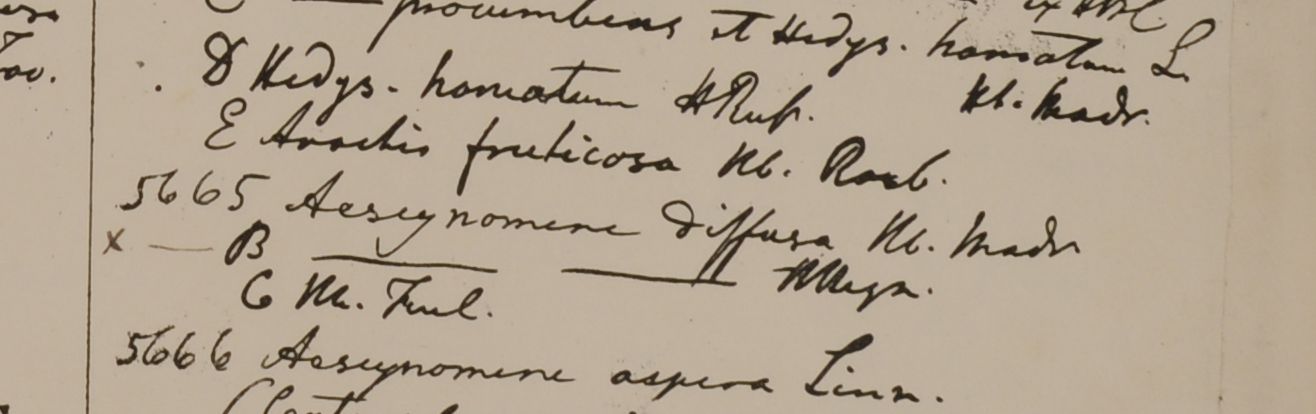 procumbens et Hedys. hamatum L.
Hb. Madr.
D Hedys. hamatum HRup.
E Arachis fruticosa Hb. Roxb.
5665 Aescynomene diffusa Hb. Madr
x — B ——— ——— HWign.
C Hb. Finl.
5666 Aescynomene aspera Linn.